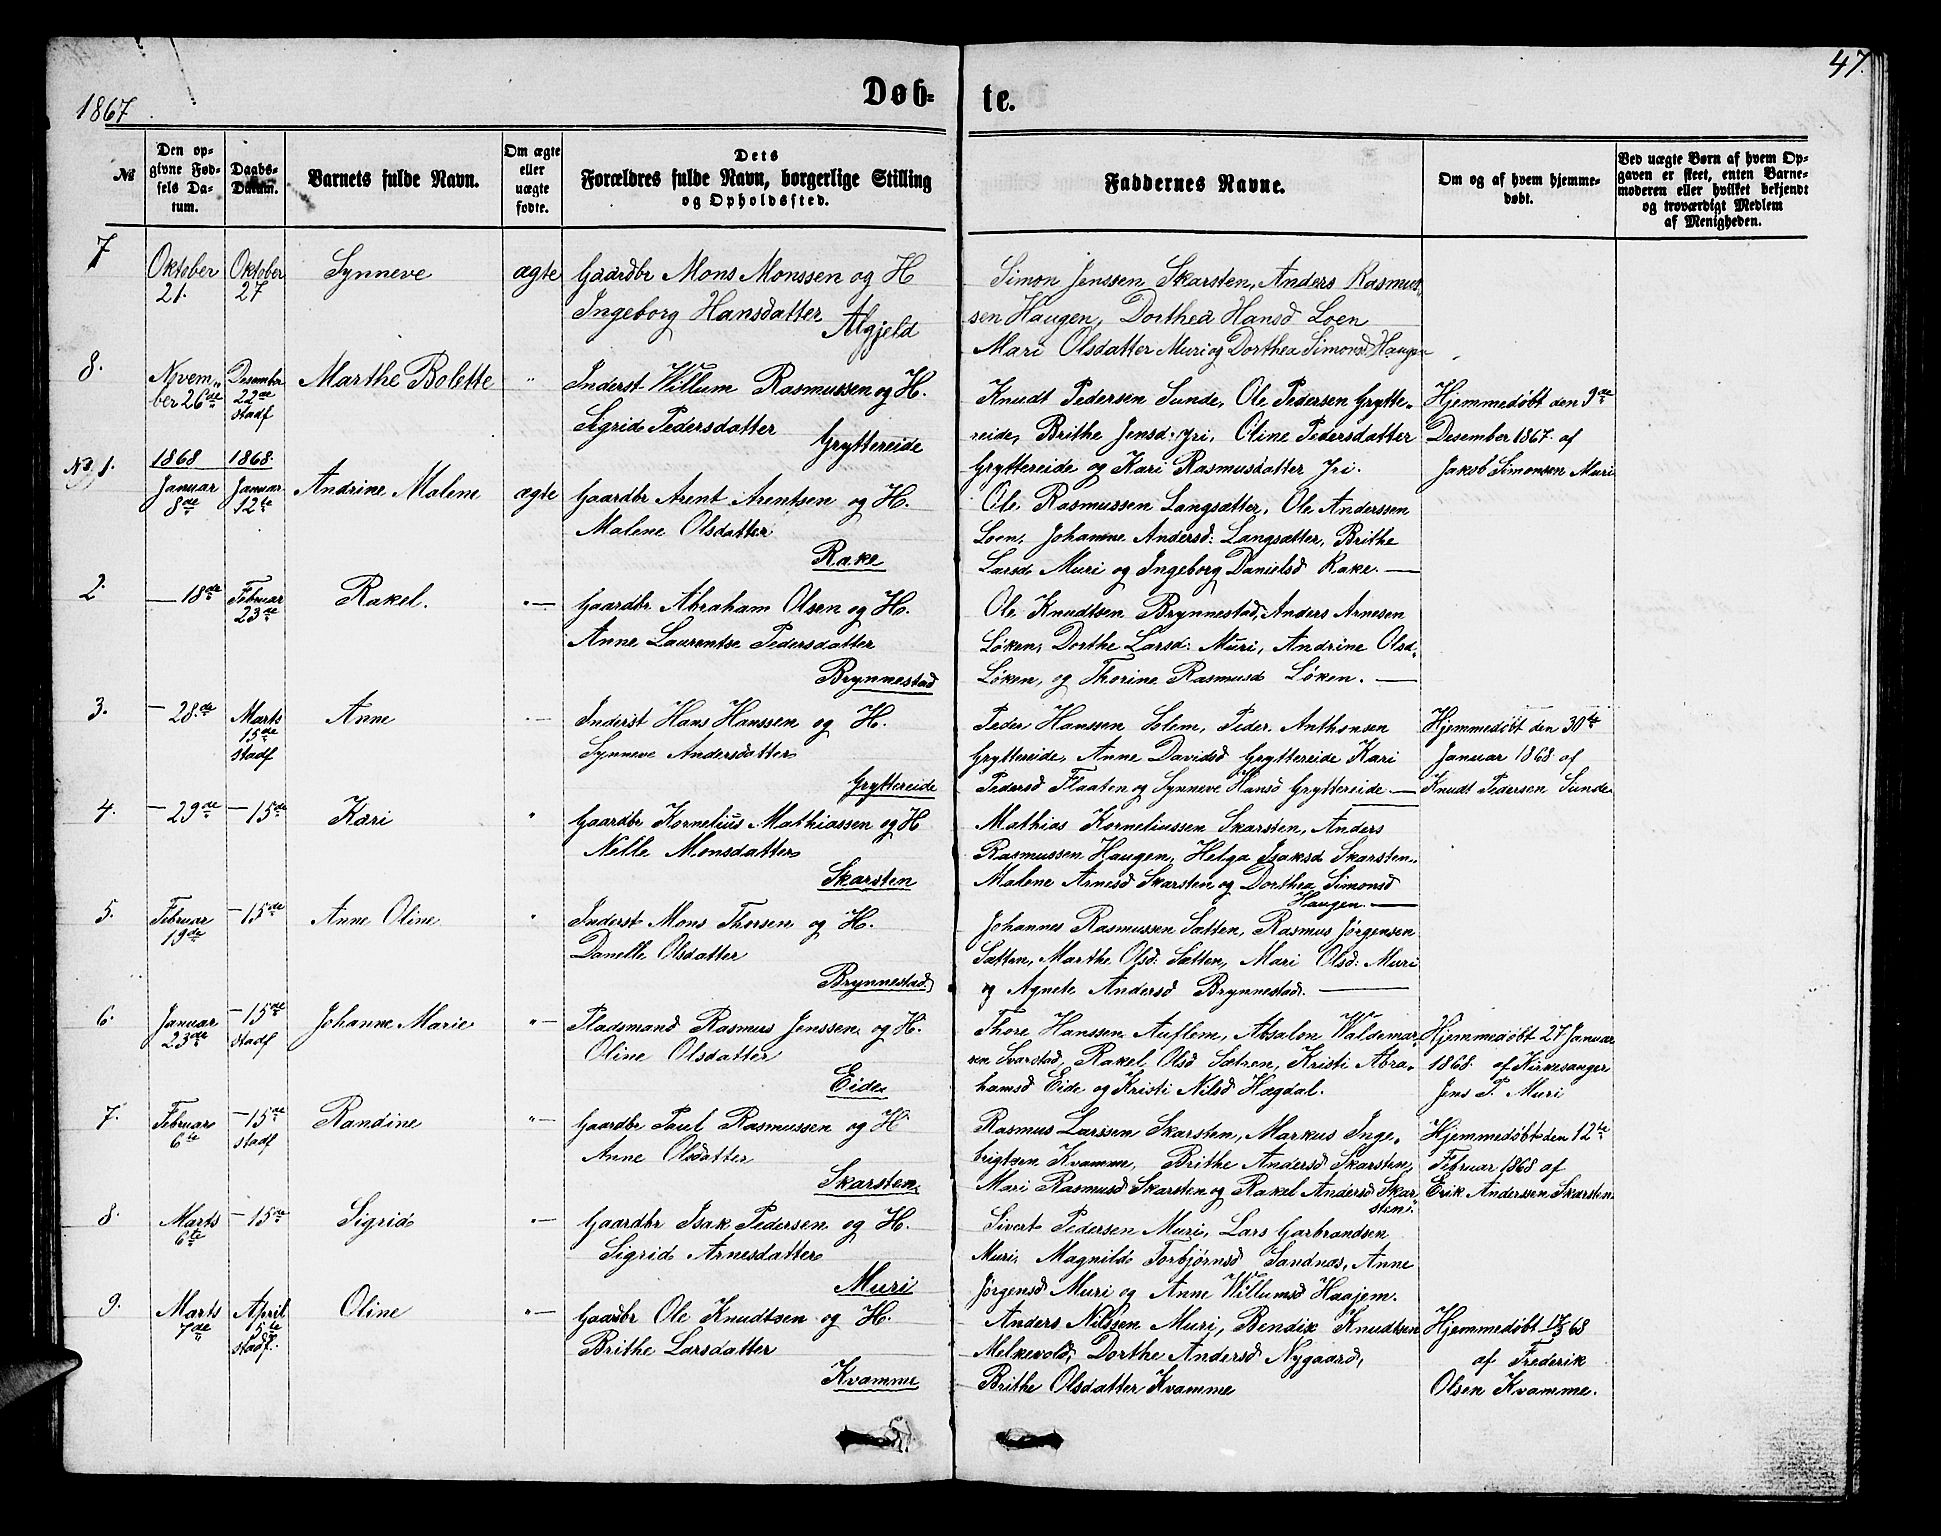 47.
1867.
Døb= te.
№
Den op=
givne Fød=
sels Da=
tum.
Daabs=
Datum.
Barnets fulde Navn.
Om ægte
eller
uægte
fødte.
Dets
Forældres fulde Navn, borgerlige Stilling
og Opholdssted.
Faddernes Navne.
Om og af hvem hjemme=
døbt.
Ved uægte Børn af hvem Op=
gaven er skeet, enten Barne=
moderen eller hvilket bekjendt
og troværdigt Medlem
af Menigheden.
7
Oktober
21.
Oktober
27
Synneve
ægte
Gaardbr Mons Monssen og H
Ingeborg Hansdatter
Algjeld
Simon Jenssen Skarsten, Anders Rasmus-
sen Haugen, Dorthea Hansd Loen
Mari Olsdatter Muri og Dorthea Simonsd Haugen
8.
Novem-
ber 26de
Desember
22de
stadf
Marthe Bolette
"
Inderst Willum Rasmussen og H.
Sigrid Pedersdatter
Gryttereide
Knudt Pedersen Sunde, Ole Pedersen Grytte-
reide, Brithe Jensd: Yri, Oline Pedersdatter
Gryttereide og Kari Rasmusdatter Yri.
Hjemmedøbt den 9de
Desember 1867. af
Jakob Simonsen Muri
№ 1.
1868
Januar
8de
1868.
Januar
12te
Andrine Malene
ægte
Gaardbr Arent Arentsen og H.
Malene Olsdatter
Rake
Ole Rasmussen Langsætter, Ole Anderssen
Loen, Johanne Andersd: Langsætter, Brithe
Larsd Muri og Ingeborg Danielsd Rake. —
2.
— 18de
Februar
23de
Rakel.
"—
Gaardbr Abraham Olsen og H.
Anne Laurentse Pedersdatter
Brynnestad
Ole Knudtsen Brynnestad, Anders Arnesen
Løken, Dorthe Larsd: Muri, Andrine Olsd-
Løken, og Thorine Rasmusd Løken. —
3.
— 28de
Marts
15de
stadf
Anne
"—
Inderst Hans Hanssen og H.
Synneve Andersdatter
Gryttereide
Peder Hanssen Solem, Peder Anthonsen
Gryttereide, Anne Davidsd Gryttereide Kari
Pedersd Flaaten og Synneve Hansd Gryttereide —
Hjemmedøbt den 30te
Januar 1868 af
Knudt Pedersen Sunde
4.
— 29de
— 15de
Kari
"
Gaardbr Kornelius Mathiassen og H
Nelle Monsdatter
Skarsten
Mathias Korneliussen Skarsten, Anders
Rasmussen Haugen, Helga Isaksd Skarsten,
Malene Arnesd Skarsten og Dorthea Simonsd
Haugen. —
5.
Februar
19de
— 15de
Anne Oline
"
Inderst Mons Thorsen og H.
Danelle Olsdatter
Brynnestad
Johannes Rasmussen Sætten, Rasmus Jørgensen
Sætten, Marthe Olsd: Sætten, Mari Olsd: Muri
og Agnete Andersd Brynnestad. —
6.
Januar
23de
— 15de
stadf
Johanne Marie
"—
Pladsmand Rasmus Jenssen og H.
Oline Olsdatter
Eide
Thore Hanssen Auflem, Absalon Waldemar-
sen Svarstad, Rakel Olsd Sætren, Kristi Abra-
hamsd Eide og Kristi Nilsd Hægdal.
Hjemmedøbt 27 Januar
1868. af Kirkesanger
Jens P. Muri
7.
Februar
6te
— 15de
stadf
Randine
"—
Gaardbr Paul Rasmussen og H
Anne Olsdatter
Skarsten
Rasmus Larssen Skarsten, Markus Inge-
brigtsen Kvamme, Brithe Andersd Skarsten,
Mari Rasmusd Skarsten og Rakel Andersd Skar-
sten.
Hjemmedøbt den 12te
Februar 1868 af
Erik Anderssen Skarsten
8.
Marts
6te
— 15de
Sigrid
"—
Gaardbr Isak Pedersen og H.
Sigrid Arnesdatter
Muri
Sivert Pedersen Muri, Lars Garbrandsen
Muri, Magnild Torbjørnsd Sandnæs, Anne
Jørgensd Muri og Anne Willumsd Haajem.
9.
Marts
7de
April
5te
stadf.
Oline
"—
Gaardbr Ole Knudtsen og H.
Brithe Larsdatter
Kvamme
Anders Nilssen Muri, Bendix Knudtsen
Melkevold, Dorthe Andersd Nygaard,
Brithe Olsdatter Kvamme
Hjemmedøbt 17/3 68
af Frederik
Olsen Kvamme.